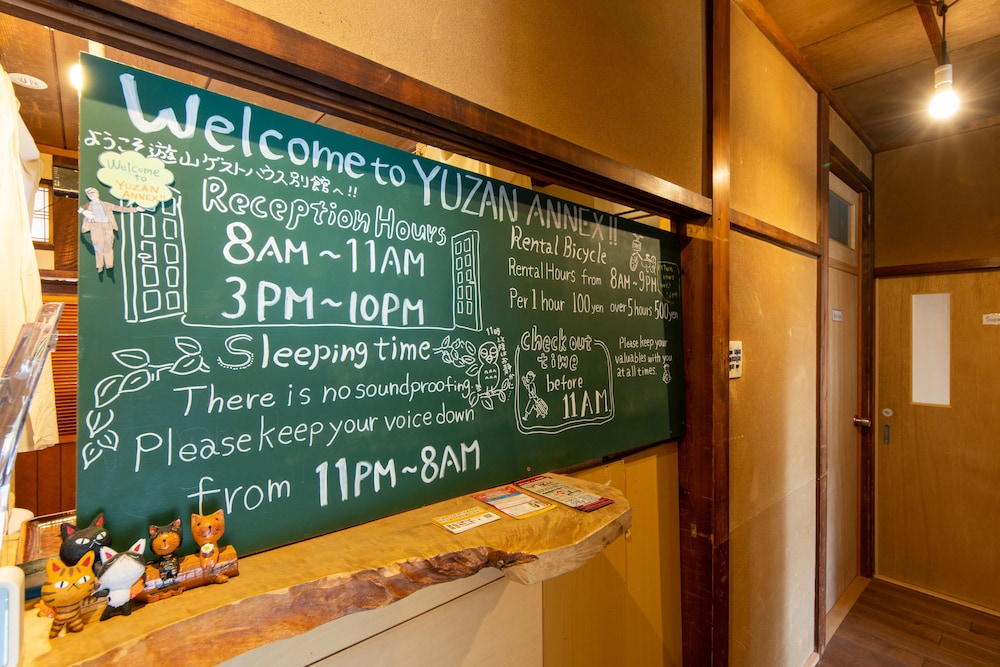 Welcome to YUZAN ANNEX!!
ようこそ遊山ゲストハウス別館へ!!
Welcome
to
YUZAN
ANNEX!!
Reception Hours
8AM~11AM
3PM~10PM
Sleeping time
There is no soundproofing
Please keep your voice down
from 11PM~8AM
Rental Bicycle
Rental Hours from 8AM~9PM
Per 1 hour 100yen over 5 hours 500yen
check out
time
before
11AM
Please keep your
valuables with you
at all times.